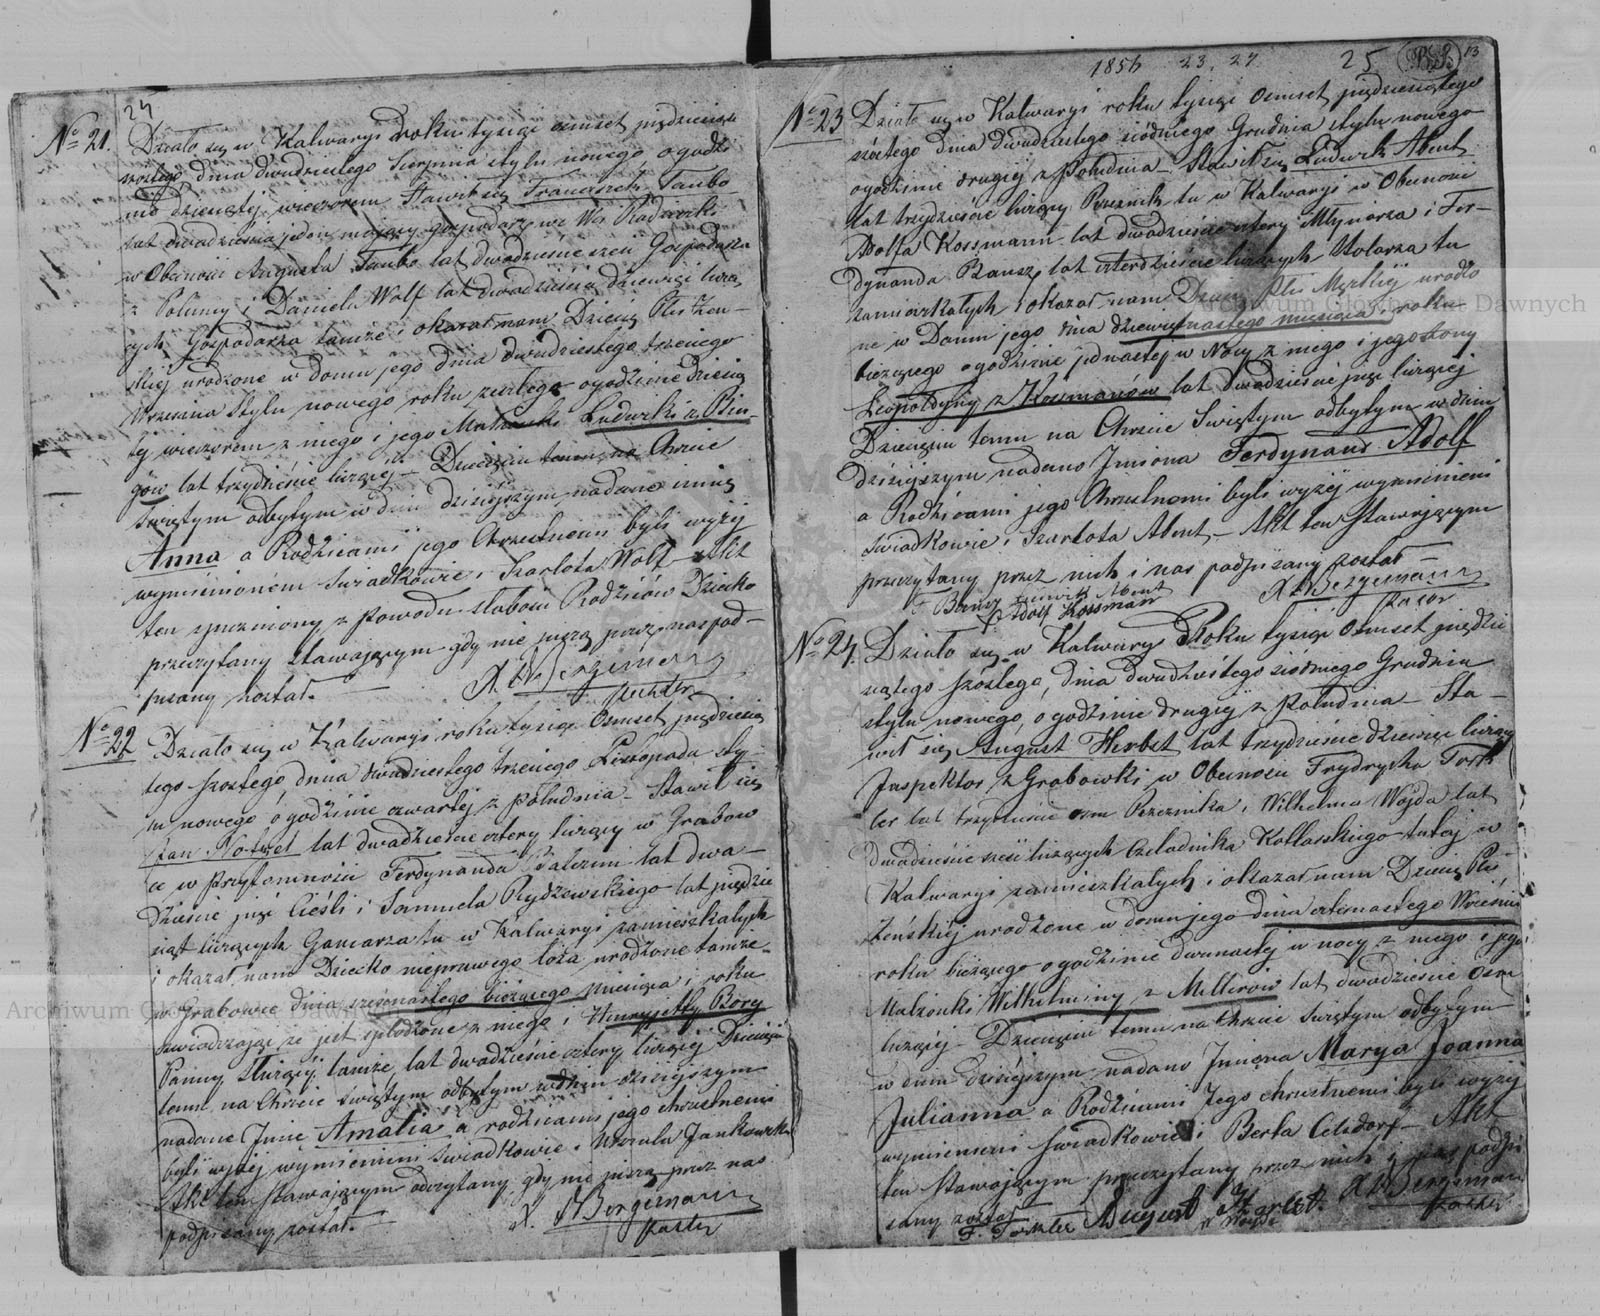 24
No 21. Działo się w Kalwaryi Roku tysiąc osmset pięćdziesiąt
szostego, dnia dwudziestego Sierpnia stylu nowego, o godzi
nie dziesiątej wieczorem Stawił się Franciszek Taube
lat dwadzieścia jeden mający gospodarz we Wsi
w Obecności Augusta Taube lat dwadzieścia sześć Gospodarza
z i Daniela Wolf lat dwadzieścia dziewięć liczą
cych Gospodarza tamże i okazał nam Dziecię Płci Żeń-
skiej urodzone w domu jego dnia dwudziestego trzeciego
Września Stylu nowego roku zeszłego o godzinie dziesią
tej wieczorem z niego i jego Małżonki Ludwiki z Bin-
gów lat trzydzieście liczącej – Dziecięciu temu na Chrzcie
Świętym odbytym w dniu dzisiejszym, nadano imię
Anna a Rodzicami jego Chrzestnemi byli wyżej
wymienionemi Świadkowie i Szarlota Wolf – Akt
ten spóźniony z powodu słabości Rodziców Dziecka
przeczytany stawającym gdy nie piszą przez nas pod-
pisany został. –
X. W Bergemann
paster
No 22 Działo się w Kalwaryi roku tysiąc Osmset pięćdziesią
tego szostego, dnia dwudziestego trzeciego Listopada sty-
lu nowego o godzinie czwartej z południa – Stawił się
Jan lat dwadzieście cztery liczący w Grabow
ce w przytomności Ferdynanda lat dwa-
dzieście pięć Cieśli i Samuela Rydzewskiego lat pięćdzie
siąt liczących Garncarza tu w Kalwaryi zamieszkałych
i okazał nam Dziecko nieprawego łoża urodzone tamże
w Grabowce dnia szesnastego bieżącego miesiąca i roku
świadcząc że jest spłodzone z niego i Henryjetty Bory
Panny Służącej tamże, lat dwadzieście cztery liczącej Dziecięciu
temu na Chrzcie świętym odbytym w dniu dzisiejszym
nadane Imie Amalia a rodzicami jego chrzestnemi
byli wyżej wymienieni świadkowie i Urszula Jankowska
Akt ten stawającym odczytany, gdy nie piszą przez nas
podpisany został. –
X. W Bergemann
paster
1856 23. 24 25 13
No 23 Działo się w Kalwaryi roku tysiąc Osmset pięćdziesiątego
szóstego dnia dwudziestego siódmego Grudnia stylu nowego
o godzinie drugiej z Południa – Stawił się Ludwik Abent
lat trzydzieście liczący Rzeźnik tu w Kalwaryi w Obecności
Adolfa Kossmann lat dwadzieście cztery Młynarza i Fer-
dynanda lat czterdzieście liczących Stolarza tu
zamieszkałych i okazał nam Dziecię Płci Męzkiej urodzo
ne w Domu jego dnia dziewiętnastego miesiąca i roku
bieżącego o godzinie jednastej w Nocy z niego i jego żony
Leopoldyny z Kossmanów lat dwadzieście pięć liczącej
Dziecięciu temu na Chrzcie Świętym odbytym w dniu
dzisiejszym nadano Imiona Ferdynand Adolf
a Rodzicami jego Chrzestnemi byli wyżej wymienieni
świadkowie i Szarlota Abent – Akt ten stawającym
przeczytany przez nich i nas podpisany został –
Ludwik Abent X W Bergemann
Adolf Kossmann pastor
No 24. Działo się w Kalwaryi Roku tysiąc Osmset pięćdzie
siątego szóstego, dnia dwudziestego siódmego Grudnia
stylu nowego, o godzinie drugiej z południa – Sta-
wił się August Herbst lat trzydzieście dziewięć liczący
Inspektor z Grabowki, w Obecności Frydrycha
lat trzydzieście osm Rzeźnika i Wilhelma Wojda lat
dwadzieście sześć liczących Czeladnika Kotlarskiego tutaj w
Kalwaryi zamieszkałych i okazał nam Dziecię Płci
Żeńskiej urodzone w domu jego dnia czternastego Września
roku bieżącego o godzinie dwunastej w nocy z niego i jego
Małżonki Wilhelminy z Millerów lat dwadzieście Ośm
liczącej – Dziecięciu temu na Chrzcie Świętym odbytym
w dniu dzisiejszym nadano Imiona Marya Joanna
Julianna a Rodzicami Jego chrzestnemi byli wyżej
wymienieni świadkowie i Berta – Akt
ten stawającym przeczytany przez nich i nas podpi
sany został X W Bergemann
August Herbst. W Wojda paster
Archiwum Główne Akt Dawnych
Archiwum Główne Akt Dawnych